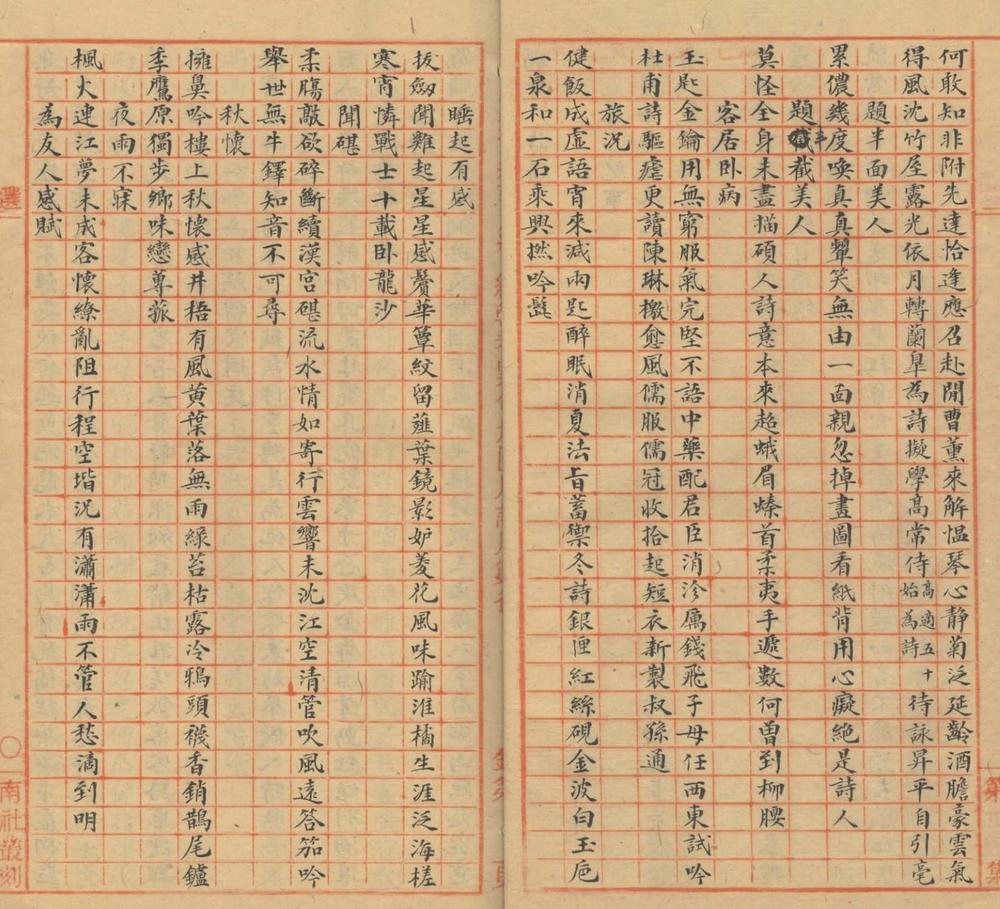 何敢知非附先達恰逢應召赴閒曹薰來解愠琴心靜菊泛延齡酒膽豪雲氣
得風沈竹屋露光依月轉蘭皐為詩擬學高常侍高適五十始為詩待詠昇平自引毫
題半面美人
累儂幾度喚真真顰笑無由一面親忽掉畫圖看紙背用心癡絶是詩人
題半截美人
莫怪全身未盡描碩人詩意本來超蛾眉螓首柔荑手遞數何曾到柳腰
客居卧病
玉匙金鑰用無窮服氣完堅不語中藥配君臣消沴厲錢飛子母任西東試吟
杜甫詩驅瘧更讀陳琳檄愈風儒服儒冠收拾起短衣新製叔孫通
旅況
健飯成虛語宵來減兩匙醉眠消夏法旨蓄禦冬詩銀匣紅絲硯金波白玉巵
一泉和一石乘興撚吟髭
睡起有感
拔劔聞雞起星星感鬢華簟紋留薤葉鏡影妒菱花風味踰淮橘生涯泛海槎
寒宵憐戰士十載卧龍沙
聞碪
柔腸敲欲碎斷續漢宮碪流水情如寄行雲響未沈江空清管吹風遠答笳吟
舉世無牛鐸知音不可尋
秋懷
擁鼻吟樓上秋懷感井梧有風黄葉落無雨綠苔枯露冷鴉頭襪香銷鵲尾鑪
季鷹原獨步鄉味戀蓴菰
夜雨不寐
楓火連江夢未成客懷繚亂阻行程空堦況有瀟瀟雨不管人愁滴到明
為友人感賦
選
南社叢刻
第
集